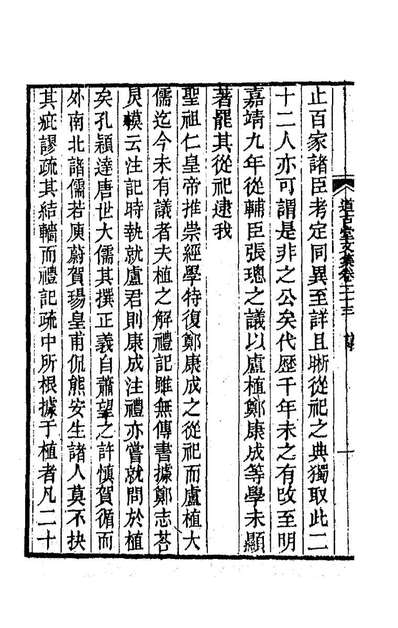 道古堂文集卷二十三
止百家諸臣考定同異至詳且晰從祀之典獨取此二
十二人亦可謂是非之公矣代歷千年未之有攺至明
嘉靖九年從輔臣張璁之議以盧植鄭康成等學未顯
著罷其從祀逮我
聖祖仁皇帝推崇經學特復鄭康成之從祀而盧植大
儒迄今未有議者夫植之解禮記雖無傳書據鄭志荅
炅模云注記時執就盧君則康成注禮亦嘗就問於植
矣孔穎達唐世大儒其撰正義自蕭望之許慎賀循而
外南北諸儒若庾蔚賀瑒皇甫侃熊安生諸人莫不抉
其疵謬疏其結轖而禮記疏中所根據于植者凡二十